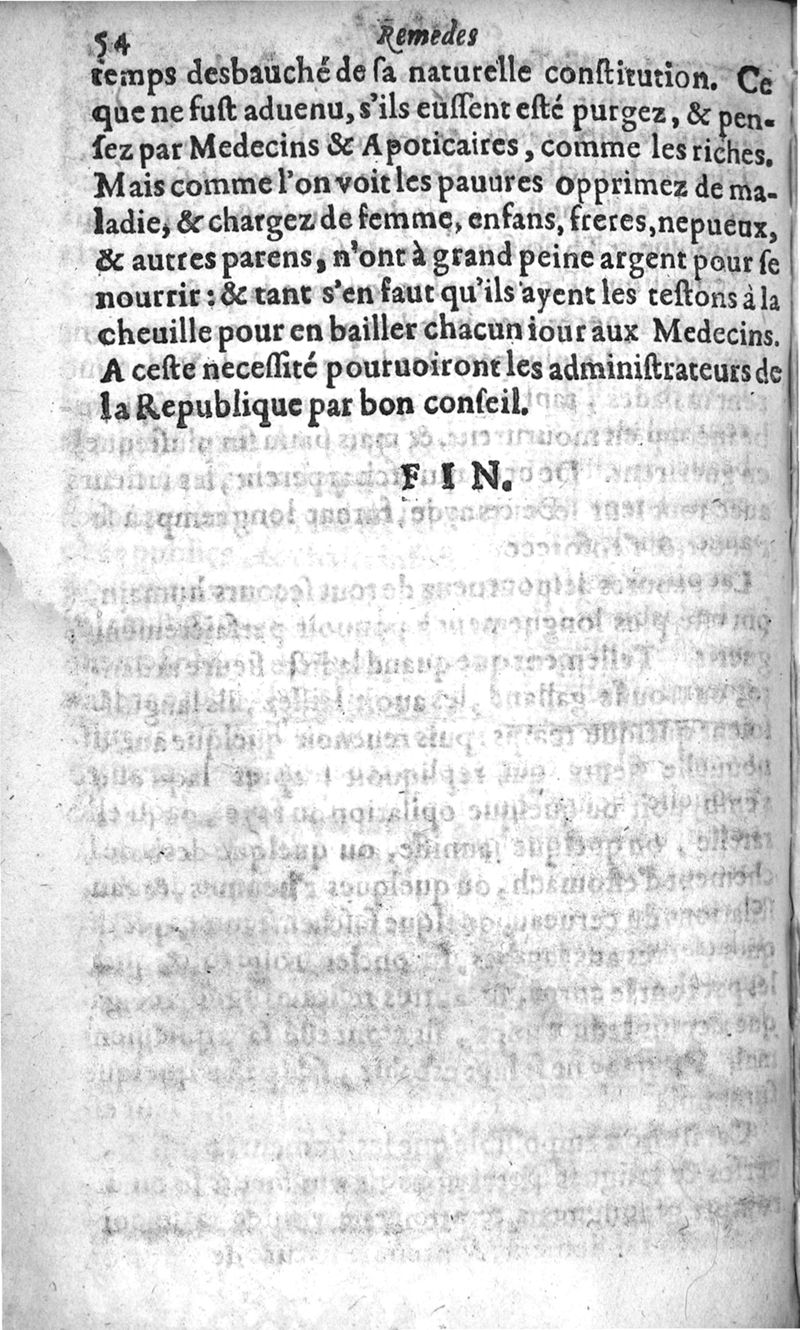 54 Remedes
temps desbauché de ſa naturelle conſtitution. Ce
que ne fuſt aduenu, s'ils euſſent eſté purgez, & pen-
ſez par Medecins & Apoticaires, comme les riches.
Mais comme l'on voit les pauures opprimez de ma-
ladie, & chargez de femme, enfans, freres, nepueux,
& autres parens, n'ont à grand peine argent pour ſe
nourrir: & tant s'en faut qu'ils ayent les teſtons à la
cheuille pour en bailler chacun iour aux Medecins.
A ceſte neceſſité pouruoiront les adminiſtrateurs de
la Republique par bon conſeil.
FIN.